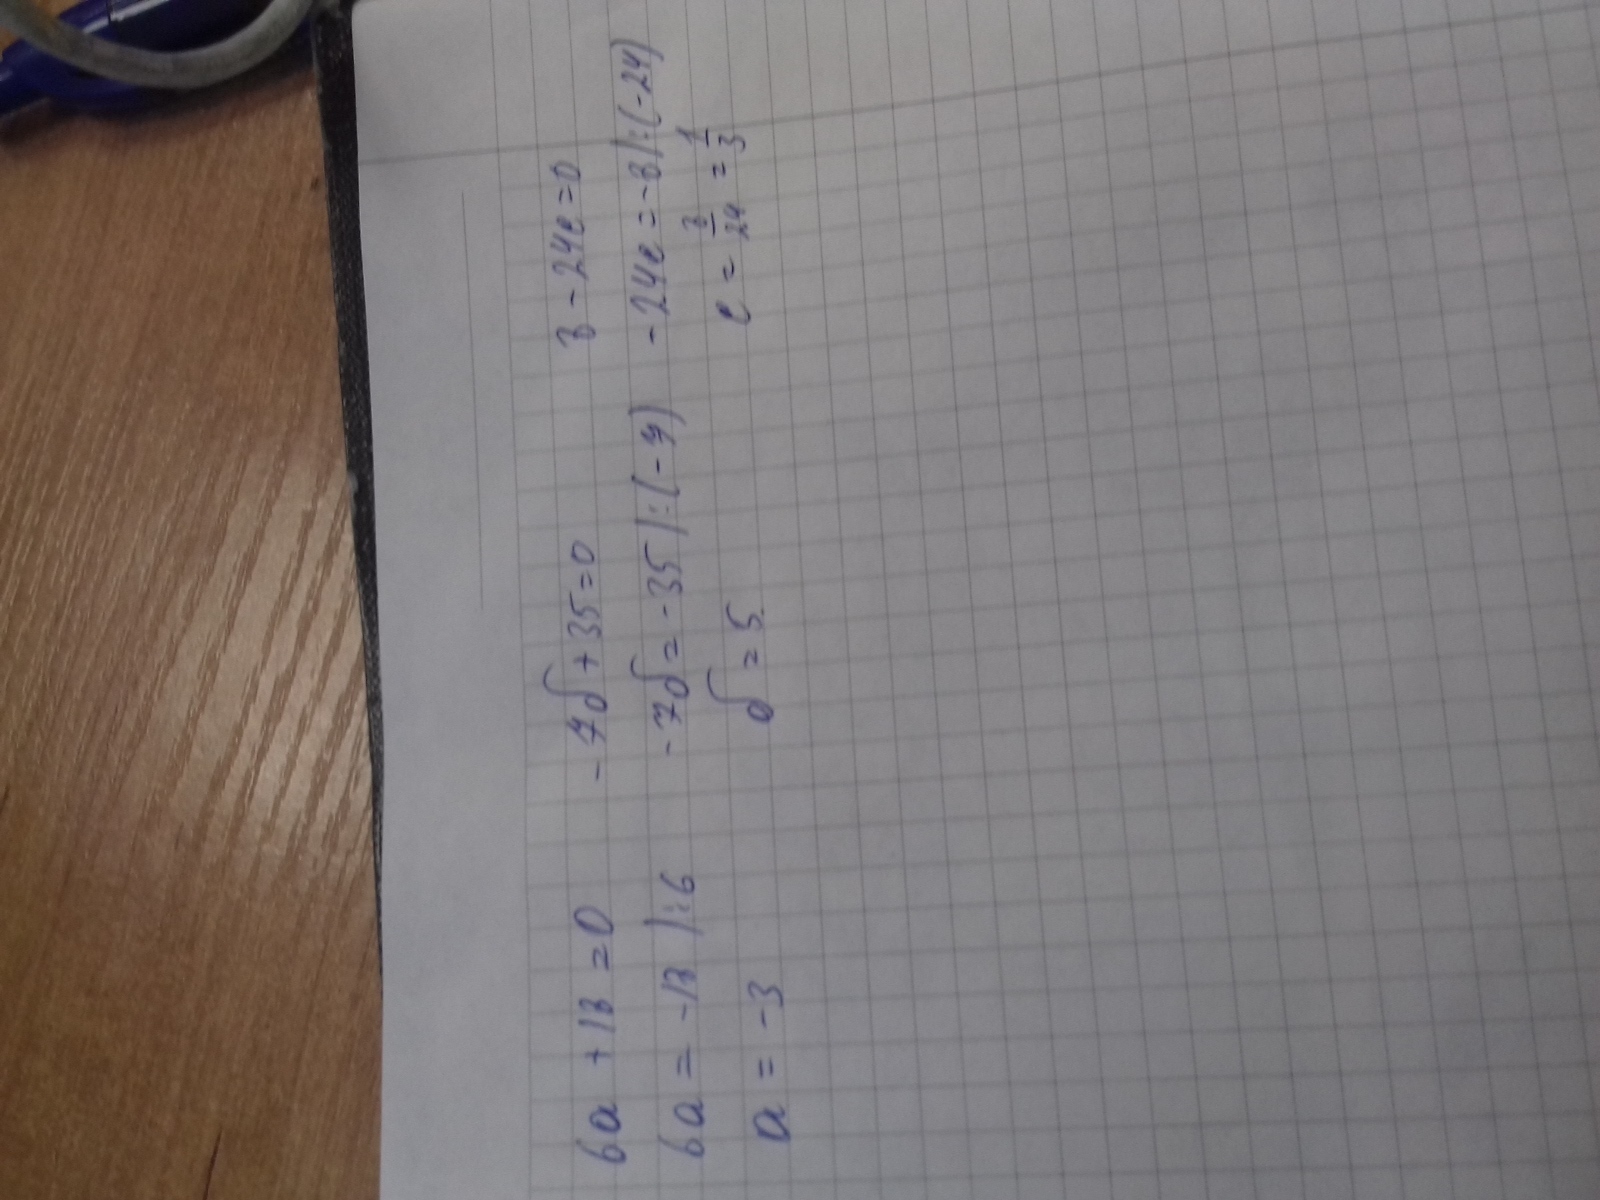 6a + 18 = 0
6a = -18 |:6
a = -3
-7б + 35 = 0
-7б = -35 |:(-7)
б = 5
8 - 24e = 0
-24e = -8 |:(-24)
e = 8/24 = 1/3